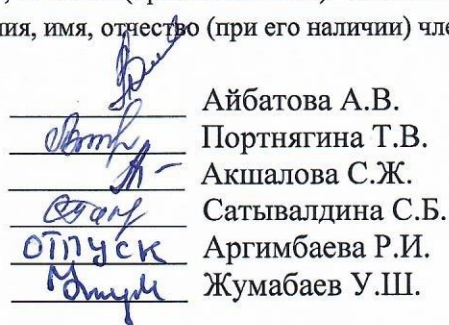 ия, имя, отчество (при его наличии) чле
Айбатова А.В.
Портнягина Т.В.
Акшалова С.Ж.
Сатывалдина С.Б.
отпуск Аргимбаева Р.И.
Жумабаев У.Ш.